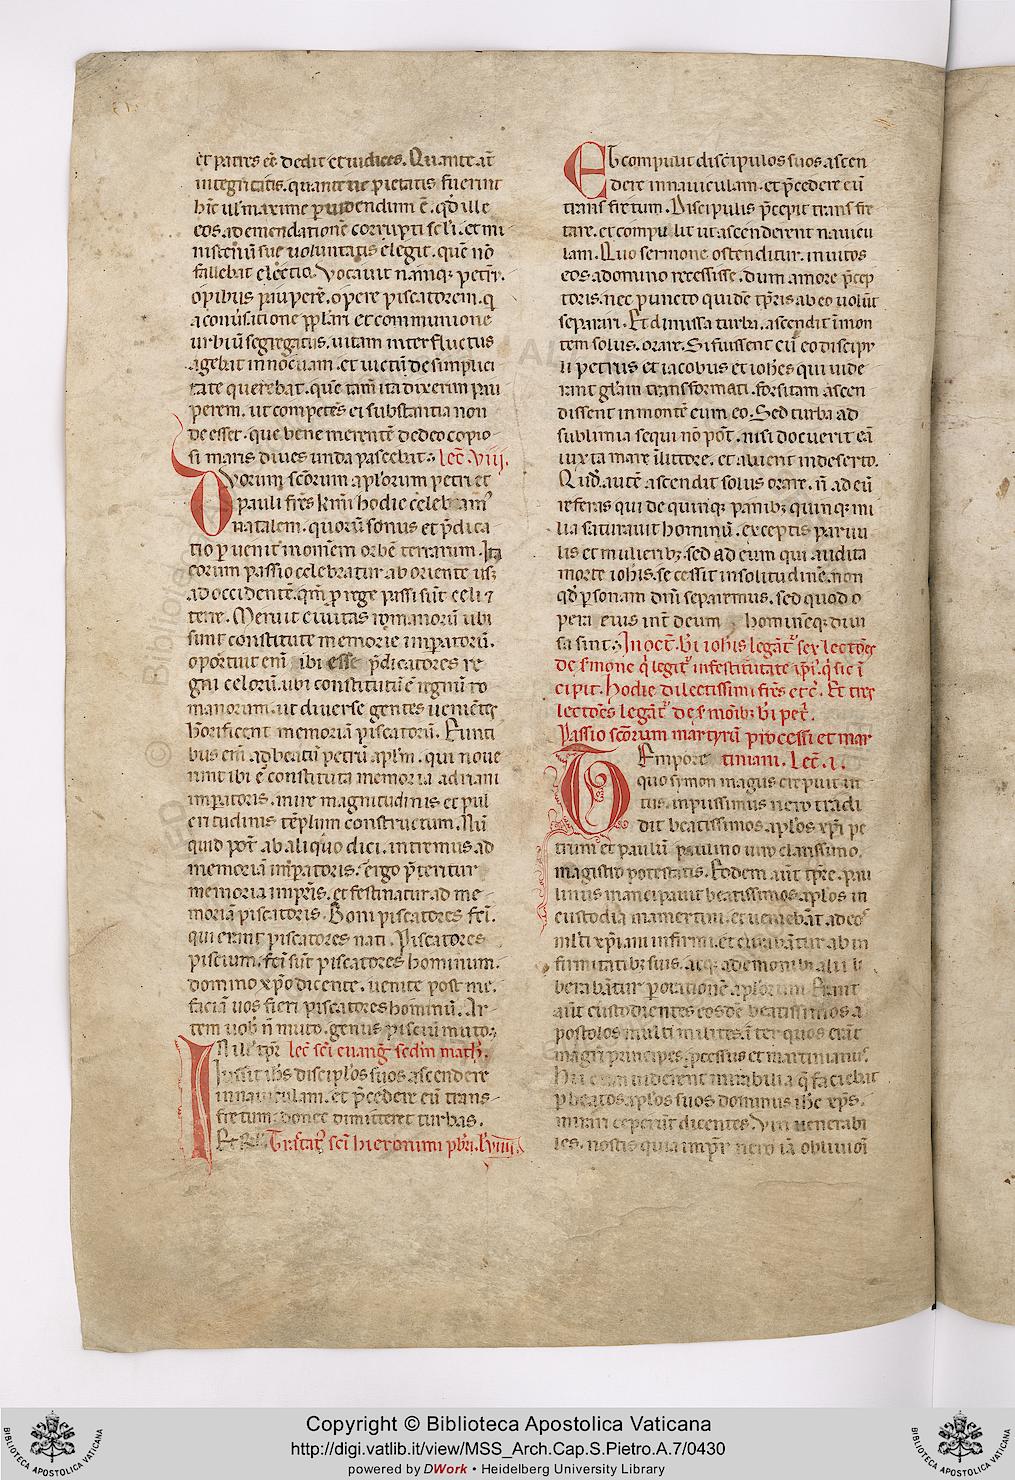 et patres eē. dedit et iudices. Quante aūt
integritatis. quante ue pietatis fuerint
hīc ul' maxime puidendum ē. qđ ille
eos. ad emendationē corrupti sc̄li. et mi
nisteriū sue uoluntatis elegit. quē nō
fallebat electio. Vocauit nanq; petr̄.
opibus paupere. opere piscatorem. q
a conūsatione pplari et communione
urbiū segregatus. uitam inter fluctus
agebat innocuam. et uictū de simplici
tate querebat. quē tam̄ ita dixerim pau
perem. ut competēs ei substantia non
deesset. que bene merentē de deo copio
si maris diues unda pascebat. lec̄. viij.
Duorum sc̄orum aplorum petri et
pauli fr̄es kr̄mi hodie celebram'
natalem. quorū sonus et p̄dica
tio puenit in om̄em orbē terrarum. Ita
eorum passio celebratur ab oriente usq;
ad occidentē. qm̄ p rege passi sūt celi et
terre. Meruit ciuitas romanorū ubi
sunt constitute memorie impatorū.
oportuit enī ibi esse p̄dicatores re
gni celorū. ubi constitutū ē regnū ro
manoram. ut diuerse gentes uenientes
honificent memoriā piscatorū. Eunti
bus enī ad beatū petrū aplm̄. qui noue
runt ibi ēē constituta memoria adriani
impatoris. mire magnitudinis et pul
critudinis tēplum constructum. Nū
quid pot̄ ab aliquo dici. intremus ad
memoriā impatoris. ergo p̄teritur
memoria impr̄is. et festinatur ad me
moriā piscatoris. Boni piscatores fc̄i.
qui erant piscatores nati. Piscatores
piscium. fc̄i sūt piscatores hominum.
domino xp̄o dicente. uenite post me.
faciā uos fieri piscatores hominū. Ar
tem uob̄ n̄ muto. genus pisciū muto.
In ill' tp̄r lec̄ sc̄i euanḡ secd'm math̄.
Iussit ih̄s discip'los suos ascendere
in nauiculam. et p̄cedere eū trans
fretum. donec dimitteret turbas.
Et rel'. Tractat' sc̄i hieronimi pb̄ri. l'.viiij.
Et compulit discipulos suos ascen
dere in nauiculam. et p̄cedere eū
trans fretum. Discipulis p̄cepit trans fre
tare. et compulit ut ascenderent nauicu
lam. Quo sermone ostenditur. inuitos
eos. a domino recessisse. dum amore p̄cep
toris. nec puncto quidē tp̄ris ab eo uolūt
separari. Et dimissa turba. ascendit ī mon
tem solus. orare. Si fuissent cū eo discipu
li petrus et iacobus et ioh̄es qui uide
rant gl̄am transformati. forsitam ascen
dissent in montē cum eo. Sed turba ad
sublimia sequi nō pōt. nisi docuerit eā
iuxta mare ī littore. et aluent in deserto.
Quod autē ascendit solus orare. n̄ ad eū
referas qui de quinq; panib; quinq; mi
lia saturauit hominū. exceptis paruu
lis et mulierib; sed ad eum qui audita
morte ioh̄is. secessit in solitudinē. non
qđ psonam dn̄i separemus. sed quod o
pera eius int̄ deum hominēq; diui
sa sint. In oct̄. b̄i ioh̄is legāt' sex lectōes
de s'mone q̄ legit' in festiuitate ip̄i'. q̄ sic ī
cipit. Hodie dilectissimi fr̄es et c̄. Et tres
lectōes legāt' de s'monib; b̄i pet̄.
Passio sc̄orum martyrū processi et mar
tiniani. Lec̄. i.
Tempore
quo symon magus crepuit in
tus. impiissimus nero tradi
dit beatissimos aplōs xp̄i pe
trum et paulū paulino uiro clarissimo.
magistro potestatis. Eodem aūt tp̄re. pau
linus mancipauit beatissimos aplōs in
custodia mamertini. et ueniebāt ad eos
ml'ti xp̄iani infirmi. et curabātur ab in
firmitatib; suis. atq; a demonib; alii li
berabātur p orationē aplorum. Erant
aūt custodientes eosdē beatissimos a
postolos multi milites. ī ter quos erāt
magn̄ principes. pcessus et martinianus.
Hii cum uiderent mirabilia q̄ faciebat
p beatos aplōs suos dominus ih̄c xp̄s.
mirari ceperūt dicentes. Viri uenerabi
les. nostis quia impr̄ nero iā obliuioī
Copyright © Biblioteca Apostolica Vaticana
http://digi.vatlib.it/view/MSS_Arch.Cap.S.Pietro.A.7/0430
powered by DWork • Heidelberg University Library
BIBLIOTECA APOSTOLICA VATICANA
BIBLIOTECA APOSTOLICA VATICANA